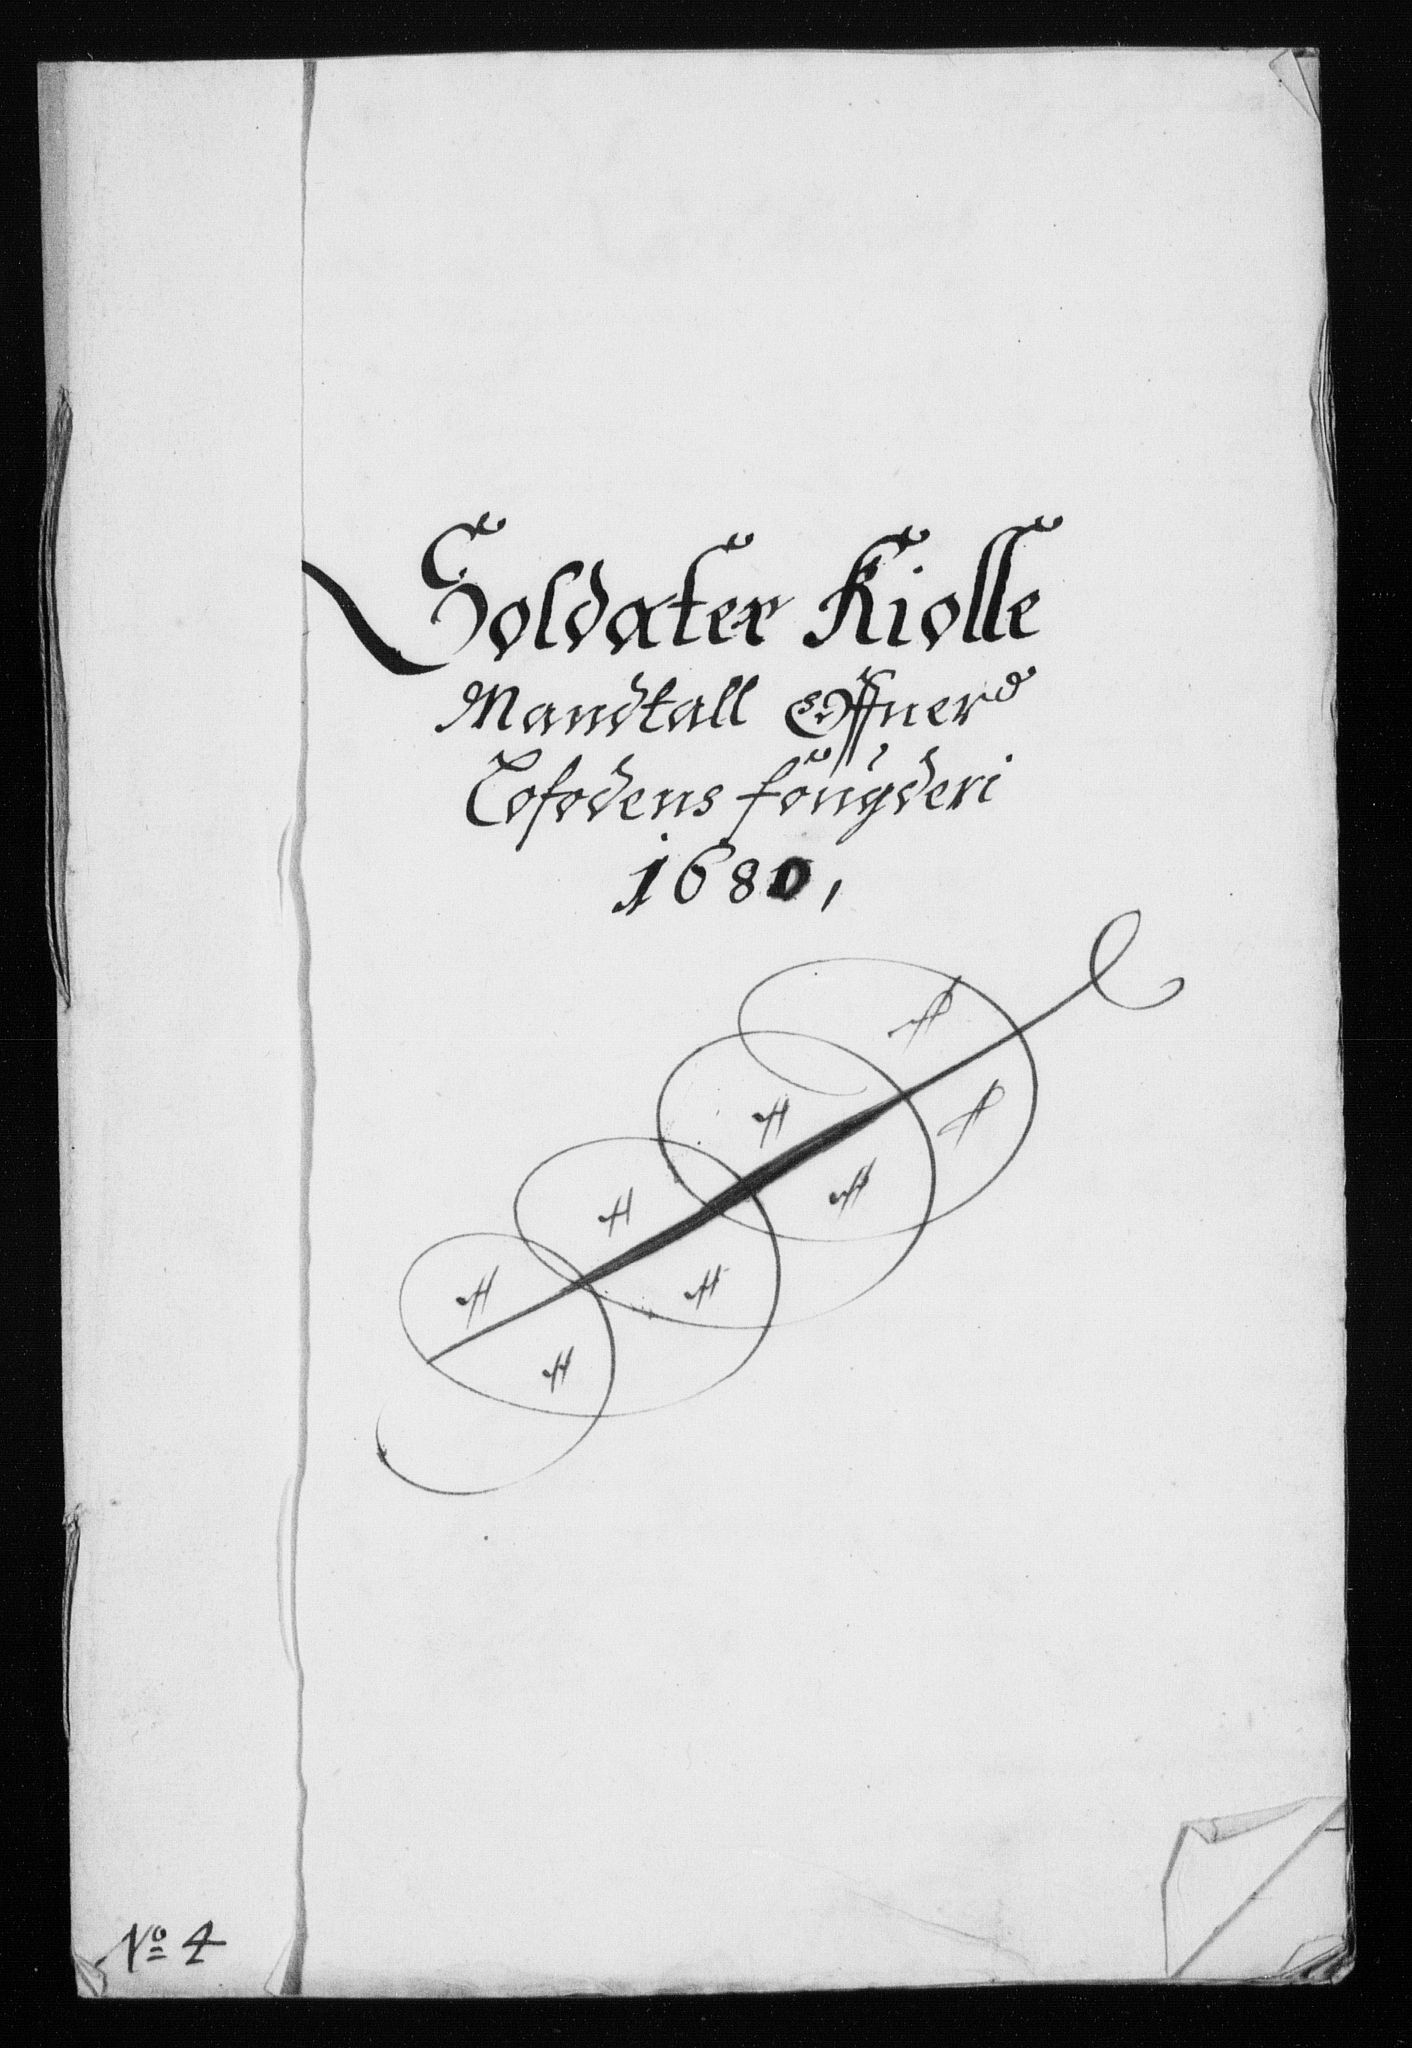 Soldater Kiolle
Mandtall Offuer
Lofodens fougderi
1680,
No 4